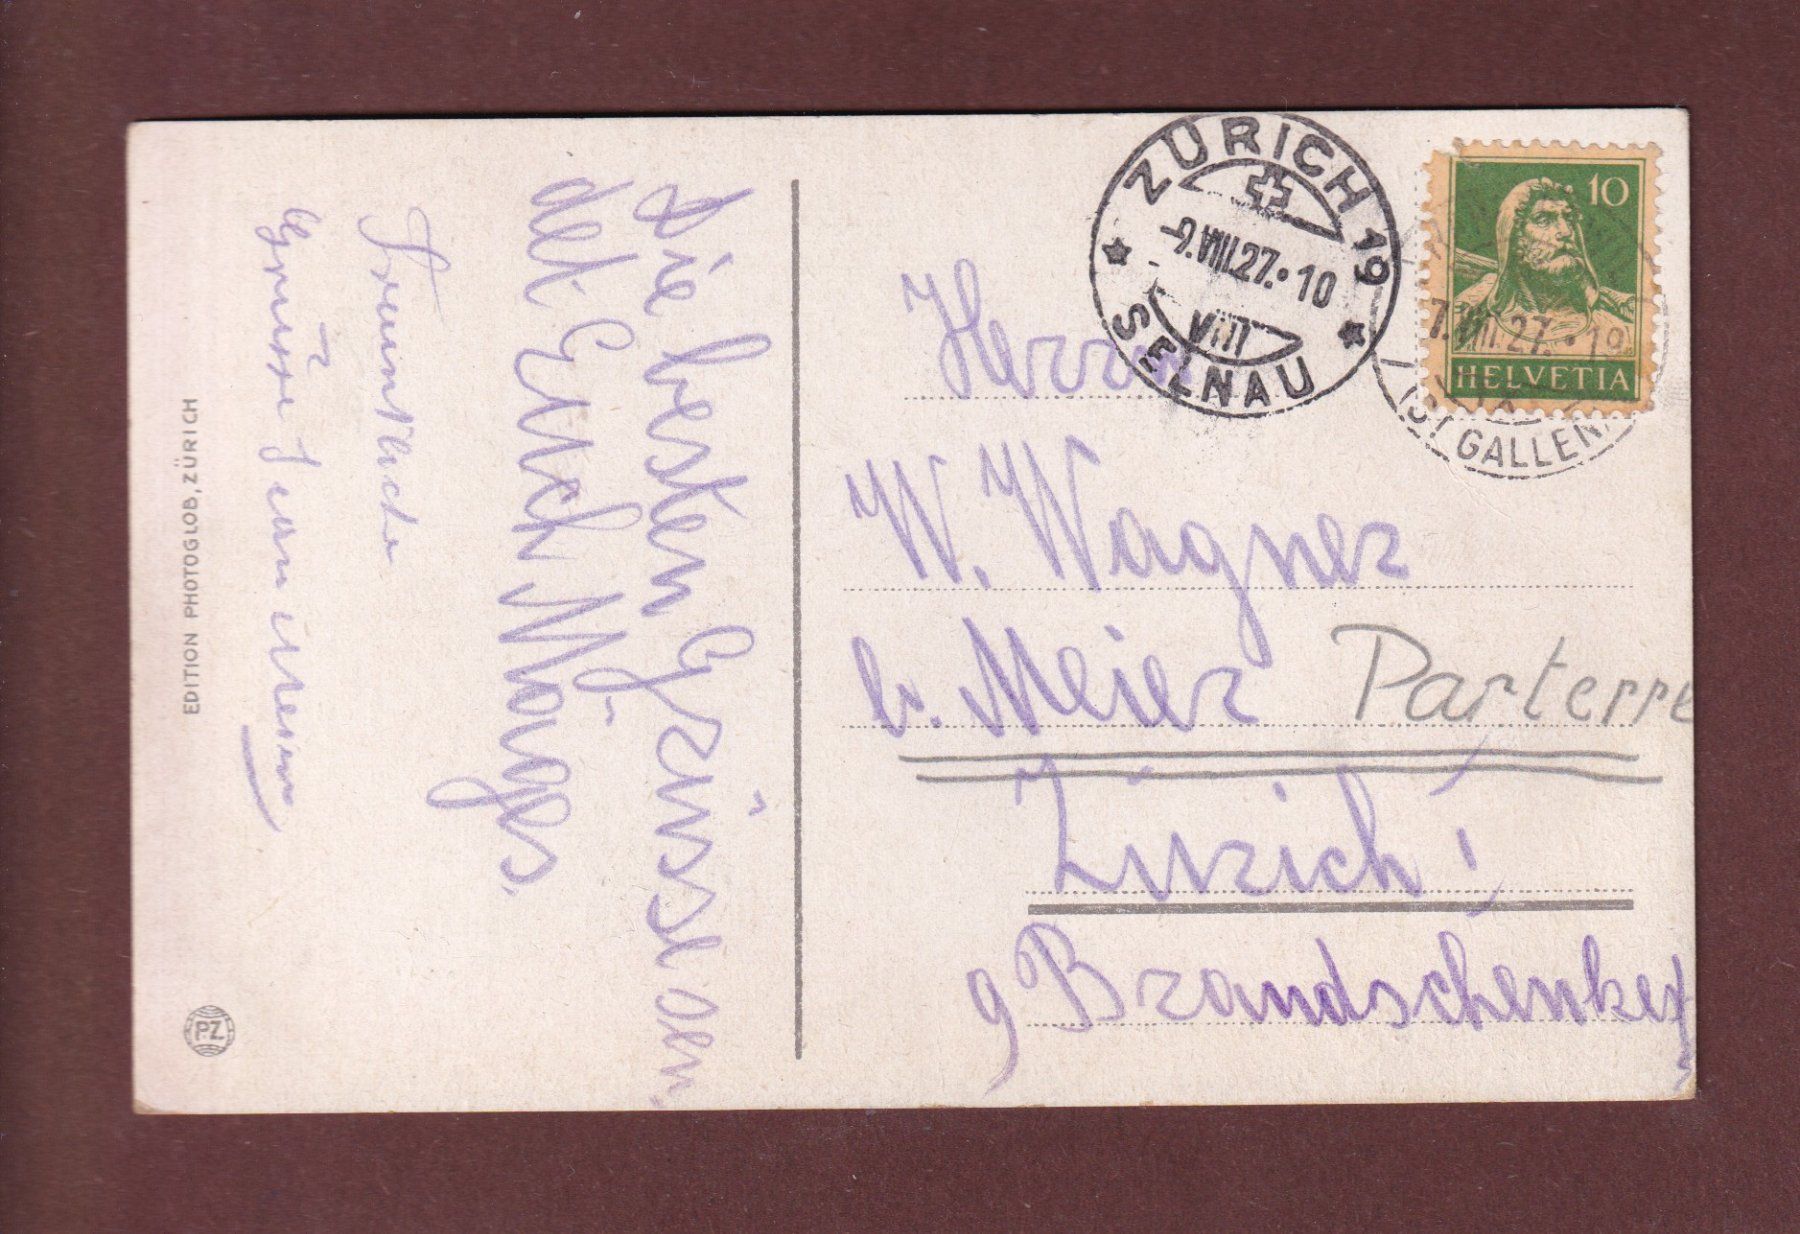 Die besten Grüsse sen
det Euch
Freundliche
Grüsse
EDITION PHOTOGLOB, ZÜRICH
PZ
ZÜRICH 19
-9.VIII.27.10
VIII
SELNAU
10
HELVETIA
7.VIII.27.19
(ST GALLEN)
Herrn
W. Wagner
b. Meier Parterre
Zürich 1
9 Brandschenkest